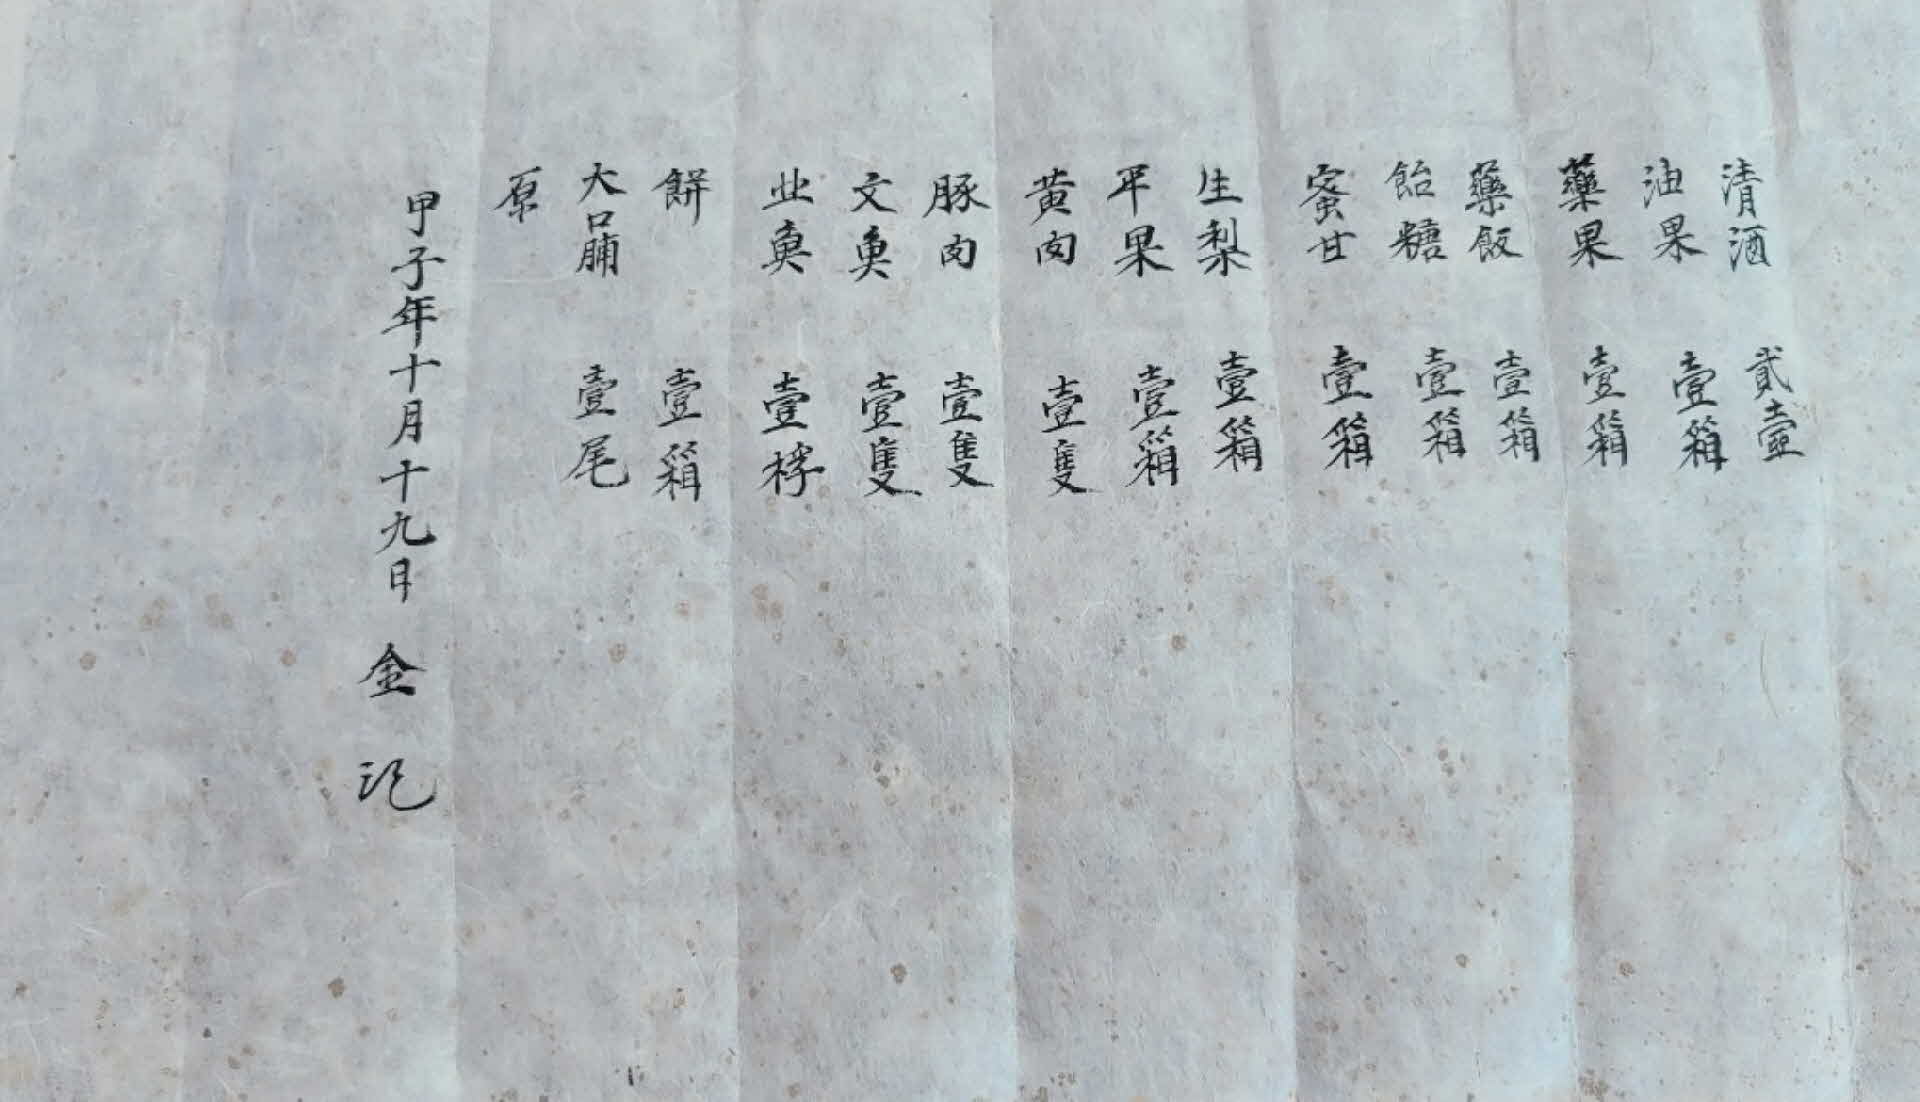 清酒 貳壺
油果 壹箱
藥果 壹箱
藥飯 壹箱
飴糖 壹箱
蜜甘 壹箱
生梨 壹箱
平果 壹箱
黃肉 壹隻
豚肉 壹隻
文魚 壹隻
北魚 壹桴
餠 壹箱
大口脯 壹尾
原
甲子年十月十九日 金 記